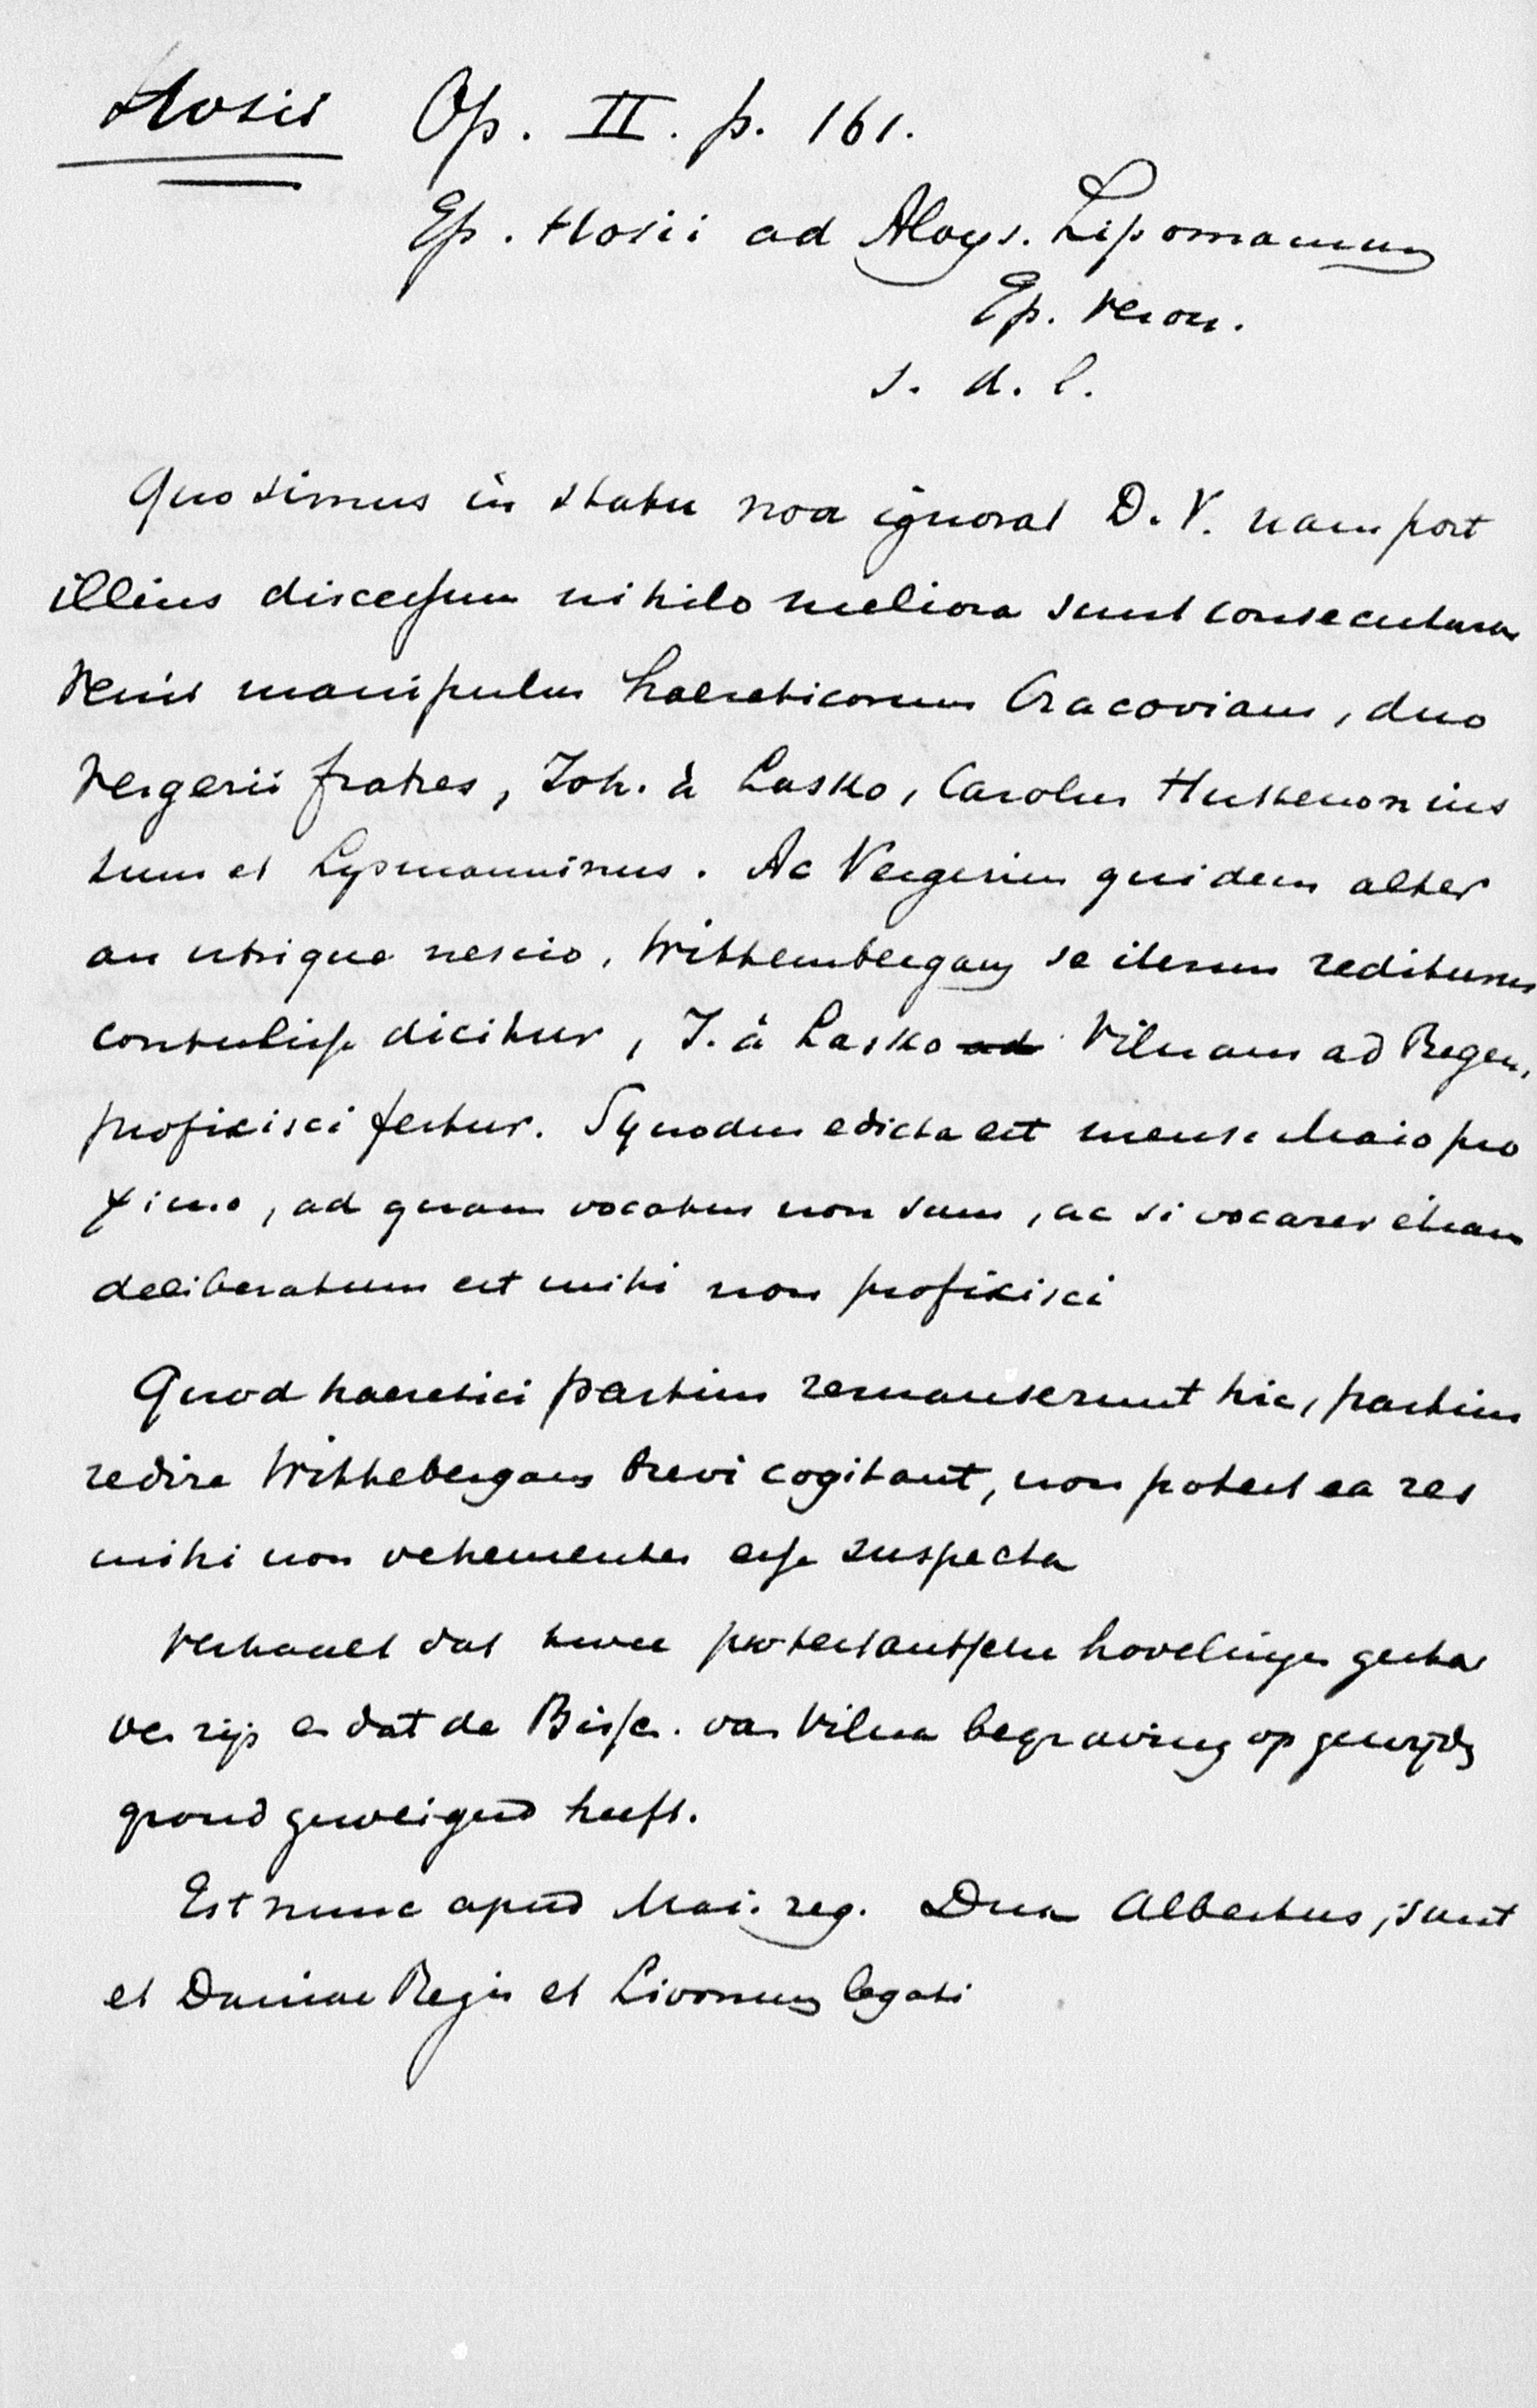 Hosii Op. II. p. 161.
Ep. Hosii ad Aloys. Lipomanum
Ep. Veron.
s. d. l.
Quo simus in statu non ignorat D. V. nam post
illius discessum nihilo meliora sunt consecutura
Venit manipulus haereticorum Cracoviam, duo
Vergerii fratres, Joh. à Lasko, Carolus Huttenonius
tum et Lysmanninus. Ac Vergerius quidem alter
an utrique nescio, Wittembergam se iterum rediturus
contulisse dicitur, J. à Lasko ad Vilnam ad Regem,
proficisci fertur. Synodus edicta est mense Maio pro
ximo, ad quam vocatus non sum, ac si vocarer etiam
deliberatum est mihi non proficisci
Quod haeretici partim remanserunt hic, partim
redire Wittebergam brevi cogitant, non potest ea res
mihi non vehementer esse suspecta
Verhaalt dat twee protestantsche hovelingen gestor
ven zijn en dat de Bissch. van Vilna begraving op gewijde
grond geweigerd heeft.
Est nunc apud Mai. reg. Dux Albertus, sunt
et Daniae Regis et Livonum legati